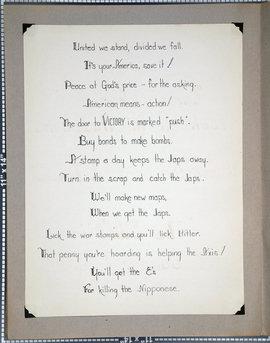 United we stand, divided we fall.
It's your America, save it!
Peace at God's price - for the asking.
American means - action!
The door to VICTORY is marked "push".
Buy bonds to make bombs.
A stamp a day keeps the Japs away.
Turn in the scrap and catch the Japs.
We'll make new maps,
When we get the Japs.
Lick the war stamps and you'll lick Hitler.
That penny you're hoarding is helping the
You'll get the E's
For killing the Nipponese.
11" x 14"
11 x 14